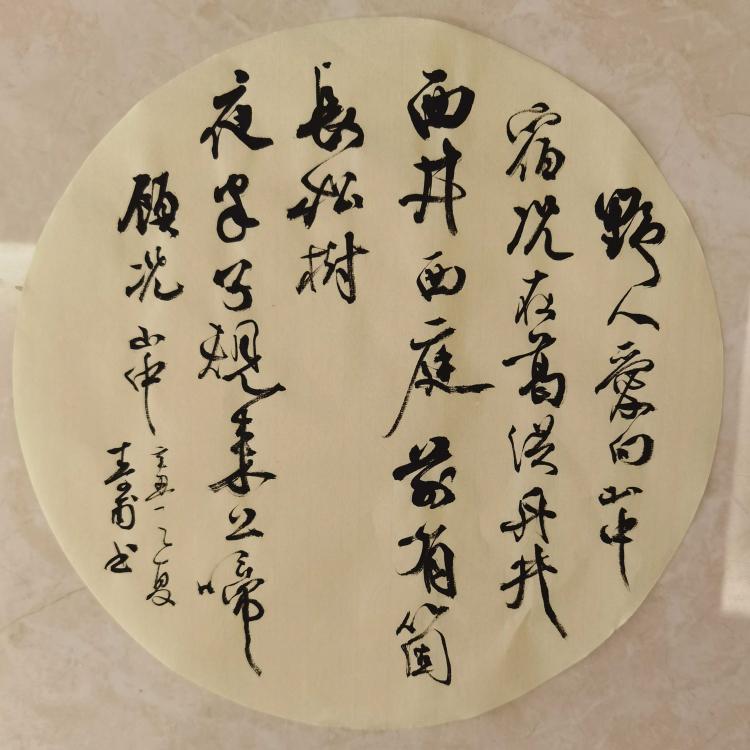 野人愛向山中
宿况在葛洪丹井
西井西庭前有箇
長松樹
夜半子規来上啼
顧况山中
辛丑之夏
书